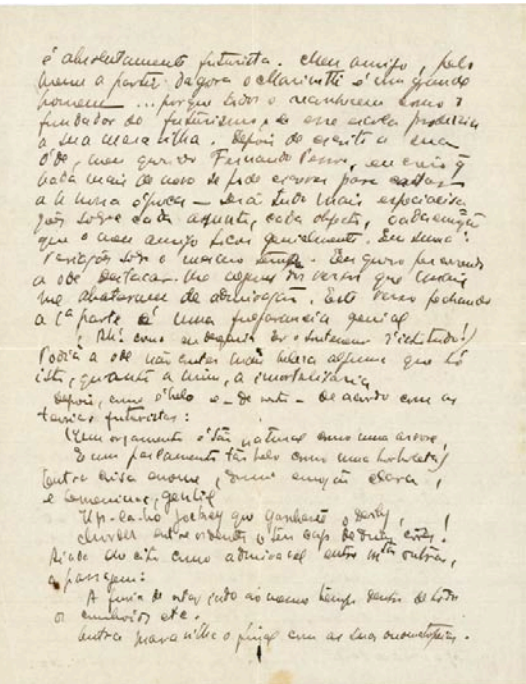 é absolutamente futurista. Meu amigo, pelo
menos a partir dagora o Marinetti é um grande
homem ... porque todos o reconhecem como o
fundador do futurismo, e essa escola produziu
a sua maravilha. Depois de escrita a sua
Ode, meu querido Fernando Pessoa, eu creio q
nada mais de novo se pode escrever para cantar
a nossa época — será tudo mais especialisa
ções sobre cada assunto, cada objecto, cada emoção
que o meu amigo focou genialmente. Em suma:
variações sobre o mesmo tema. Eu quero
a ode destacar-lhe alguns dos versos que mais
me abateram de admiração. Este verso fechando
a 1ª parte é uma genial
(Ah! como eu desejaria ser o souteneur d'isto tudo!)
Podia a ode não ter mais beleza alguma que só
isto, quanto a mim, a imortalisaria
Depois, como é belo e — de resto — de acordo com as
teorias futuristas:
(Um orçamento é tão natural como uma árvore,
E um parlamento tão belo como uma borboleta)
Outra coisa enorme, duma emoção clara,
e gentil
Up-lá-hó jockey que ganhaste o Derby,
Morder entre dentes o teu cap de duas cores!
Ainda lhe cito como admiravel entre mtas outras,
a passagem:
A furia de estar indo ao mesmo tempo dentro de todos
os comboios etc.
Outra maravilha o final com as suas onomatopeias.